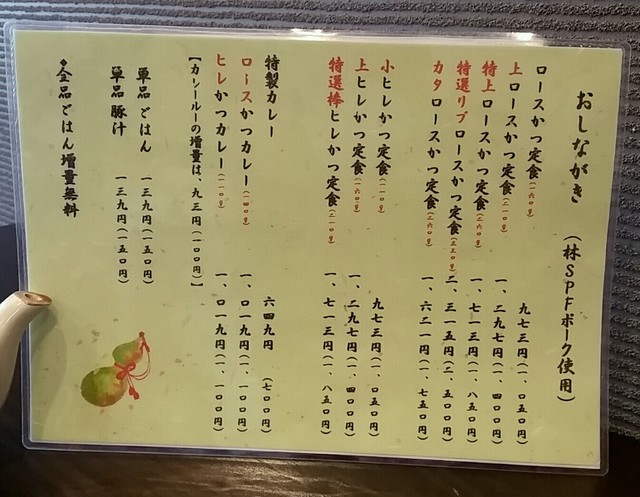 おしながき（林SPFポーク使用）
ロースかつ定食（一六〇g） 九七三円（一、〇五〇円）
上ロースかつ定食（二一〇g） 一、二九七円（一、四〇〇円）
特上ロースかつ定食（二六〇g） 一、七一三円（一、八五〇円）
特選リブロースかつ定食（三三〇g） 二、三一五円（二、五〇〇円）
カタロースかつ定食（二六〇g） 一、六二一円（一、七五〇円）
小ヒレかつ定食（一一〇g） 九七三円（一、〇五〇円）
上ヒレかつ定食（一六〇g） 一、二九七円（一、四〇〇円）
特選棒ヒレかつ定食（二一〇g） 一、七一三円（一、八五〇円）
特製カレー 六四九円（七〇〇円）
ロースかつカレー（一四〇g） 一、〇一九円（一、一〇〇円）
ヒレかつカレー（一一〇g） 一、〇一九円（一、一〇〇円）
【カレールーの増量は、九三円（一〇〇円）】
単品ごはん 一三九円（一五〇円）
単品豚汁 一三九円（一五〇円）
◆全品ごはん増量無料